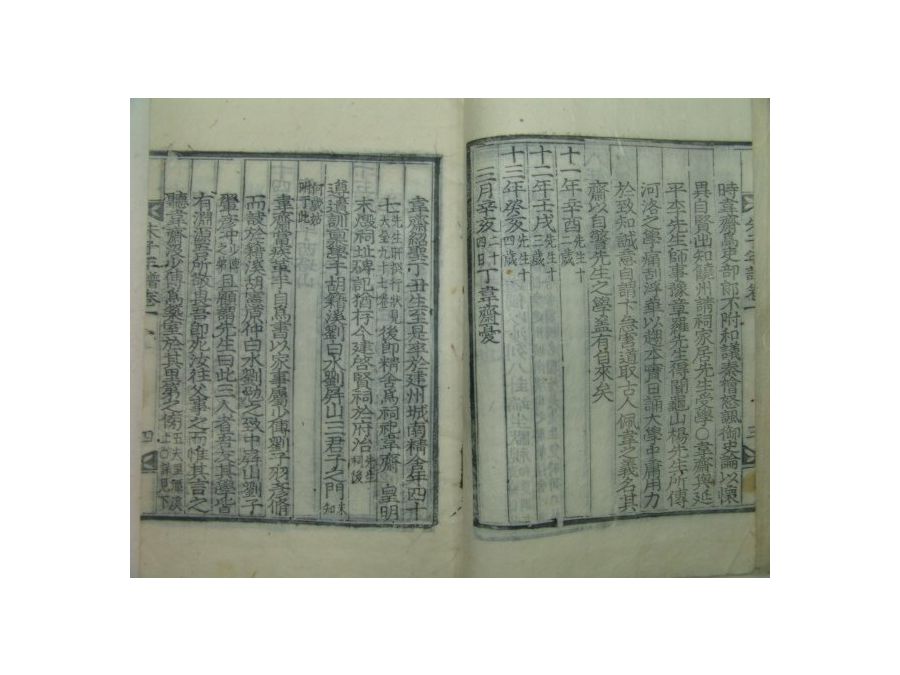 時韋齋爲吏部郎不附和議秦檜怒諷御史論以懷
異自賢出知饒州請祠家居先生受學○韋齋與延
平李先生師事豫章羅先生得聞龜山楊先生所傳
河洛之學痛刮浮華以趨本實日誦大學中庸用力
於致知誠意自謂卞急害道取古人佩韋之義名其
齋以自警先生之學蓋有自來矣
十一年辛酉先生十二歲
十二年壬戌先生十三歲
十三年癸亥先生十四歲
三月辛亥二十四日丁韋齋憂
朱子年譜卷一
三
韋齋紹聖丁丑生至是卒於建州城南精舍年四十
七後即精舍爲祠祀韋齋 皇明
末燬祠址碑記猶存今建啓賢祠於府治
遵遺訓稟學于胡籍溪劉白水劉屏山三君子之門未知
何歲始
韋齋當疾革手自爲書以家事屬少傅劉子羽彥脩
而訣於籍溪胡憲原仲白水劉勉之致中屏山劉子
翬彥冲且顧謂先生曰此三人者吾友其學皆
有淵源吾所敬畏吾即死汝往父事之而惟其言之
聽韋齋歿少傅爲築室於其里第之傍
朱子年譜卷一
四